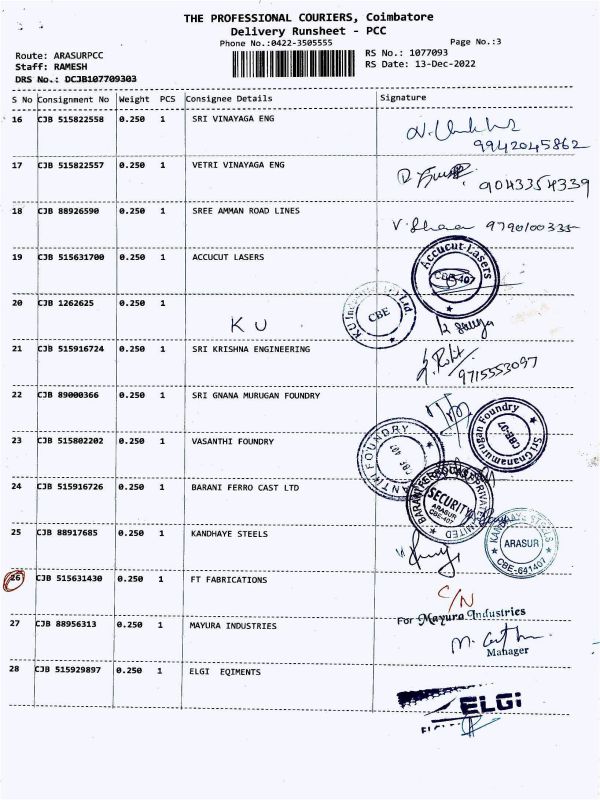 THE PROFESSIONAL COURIERS, Coimbatore
Delivery Runsheet - PCC
Phone No.:0422-3505555
Page No.:3
Route: ARASURPCC
RS No.: 1077093
Staff: RAMESH
RS Date: 13-Dec-2022
DRS No.: DCJB107709303
S No Consignment No Weight PCS Consignee Details Signature
16 CJB 515822558 0.250 1 SRI VINAYAGA ENG
9942045862
17 CJB 515822557 0.250 1 VETRI VINAYAGA ENG
9043354339
18 CJB 88926590 0.250 1 SREE AMMAN ROAD LINES
9790100335
19 CJB 515631700 0.250 1 ACCUCUT LASERS
Accucut Lasers
CBE-407
20 CJB 1262625 0.250 1
KU
CBE
21 CJB 515916724 0.250 1 SRI KRISHNA ENGINEERING
9715553097
22 CJB 89000366 0.250 1 SRI GNANA MURUGAN FOUNDRY
Sri Gnanamurugan Foundry
CBE-07
23 CJB 515802202 0.250 1 VASANTHI FOUNDRY
FOUNDRY
CBE 407
24 CJB 515916726 0.250 1 BARANI FERRO CAST LTD
SECURITY
ARASUR
CBE-407
25 CJB 88917685 0.250 1 KANDHAYE STEELS
KANDHAYE STEELS
ARASUR
CBE-641407
26 CJB 515631430 0.250 1 FT FABRICATIONS
C/N
For Mayura Industries
27 CJB 88956313 0.250 1 MAYURA INDUSTRIES
Manager
28 CJB 515929897 0.250 1 ELGI EQIMENTS
ELGi